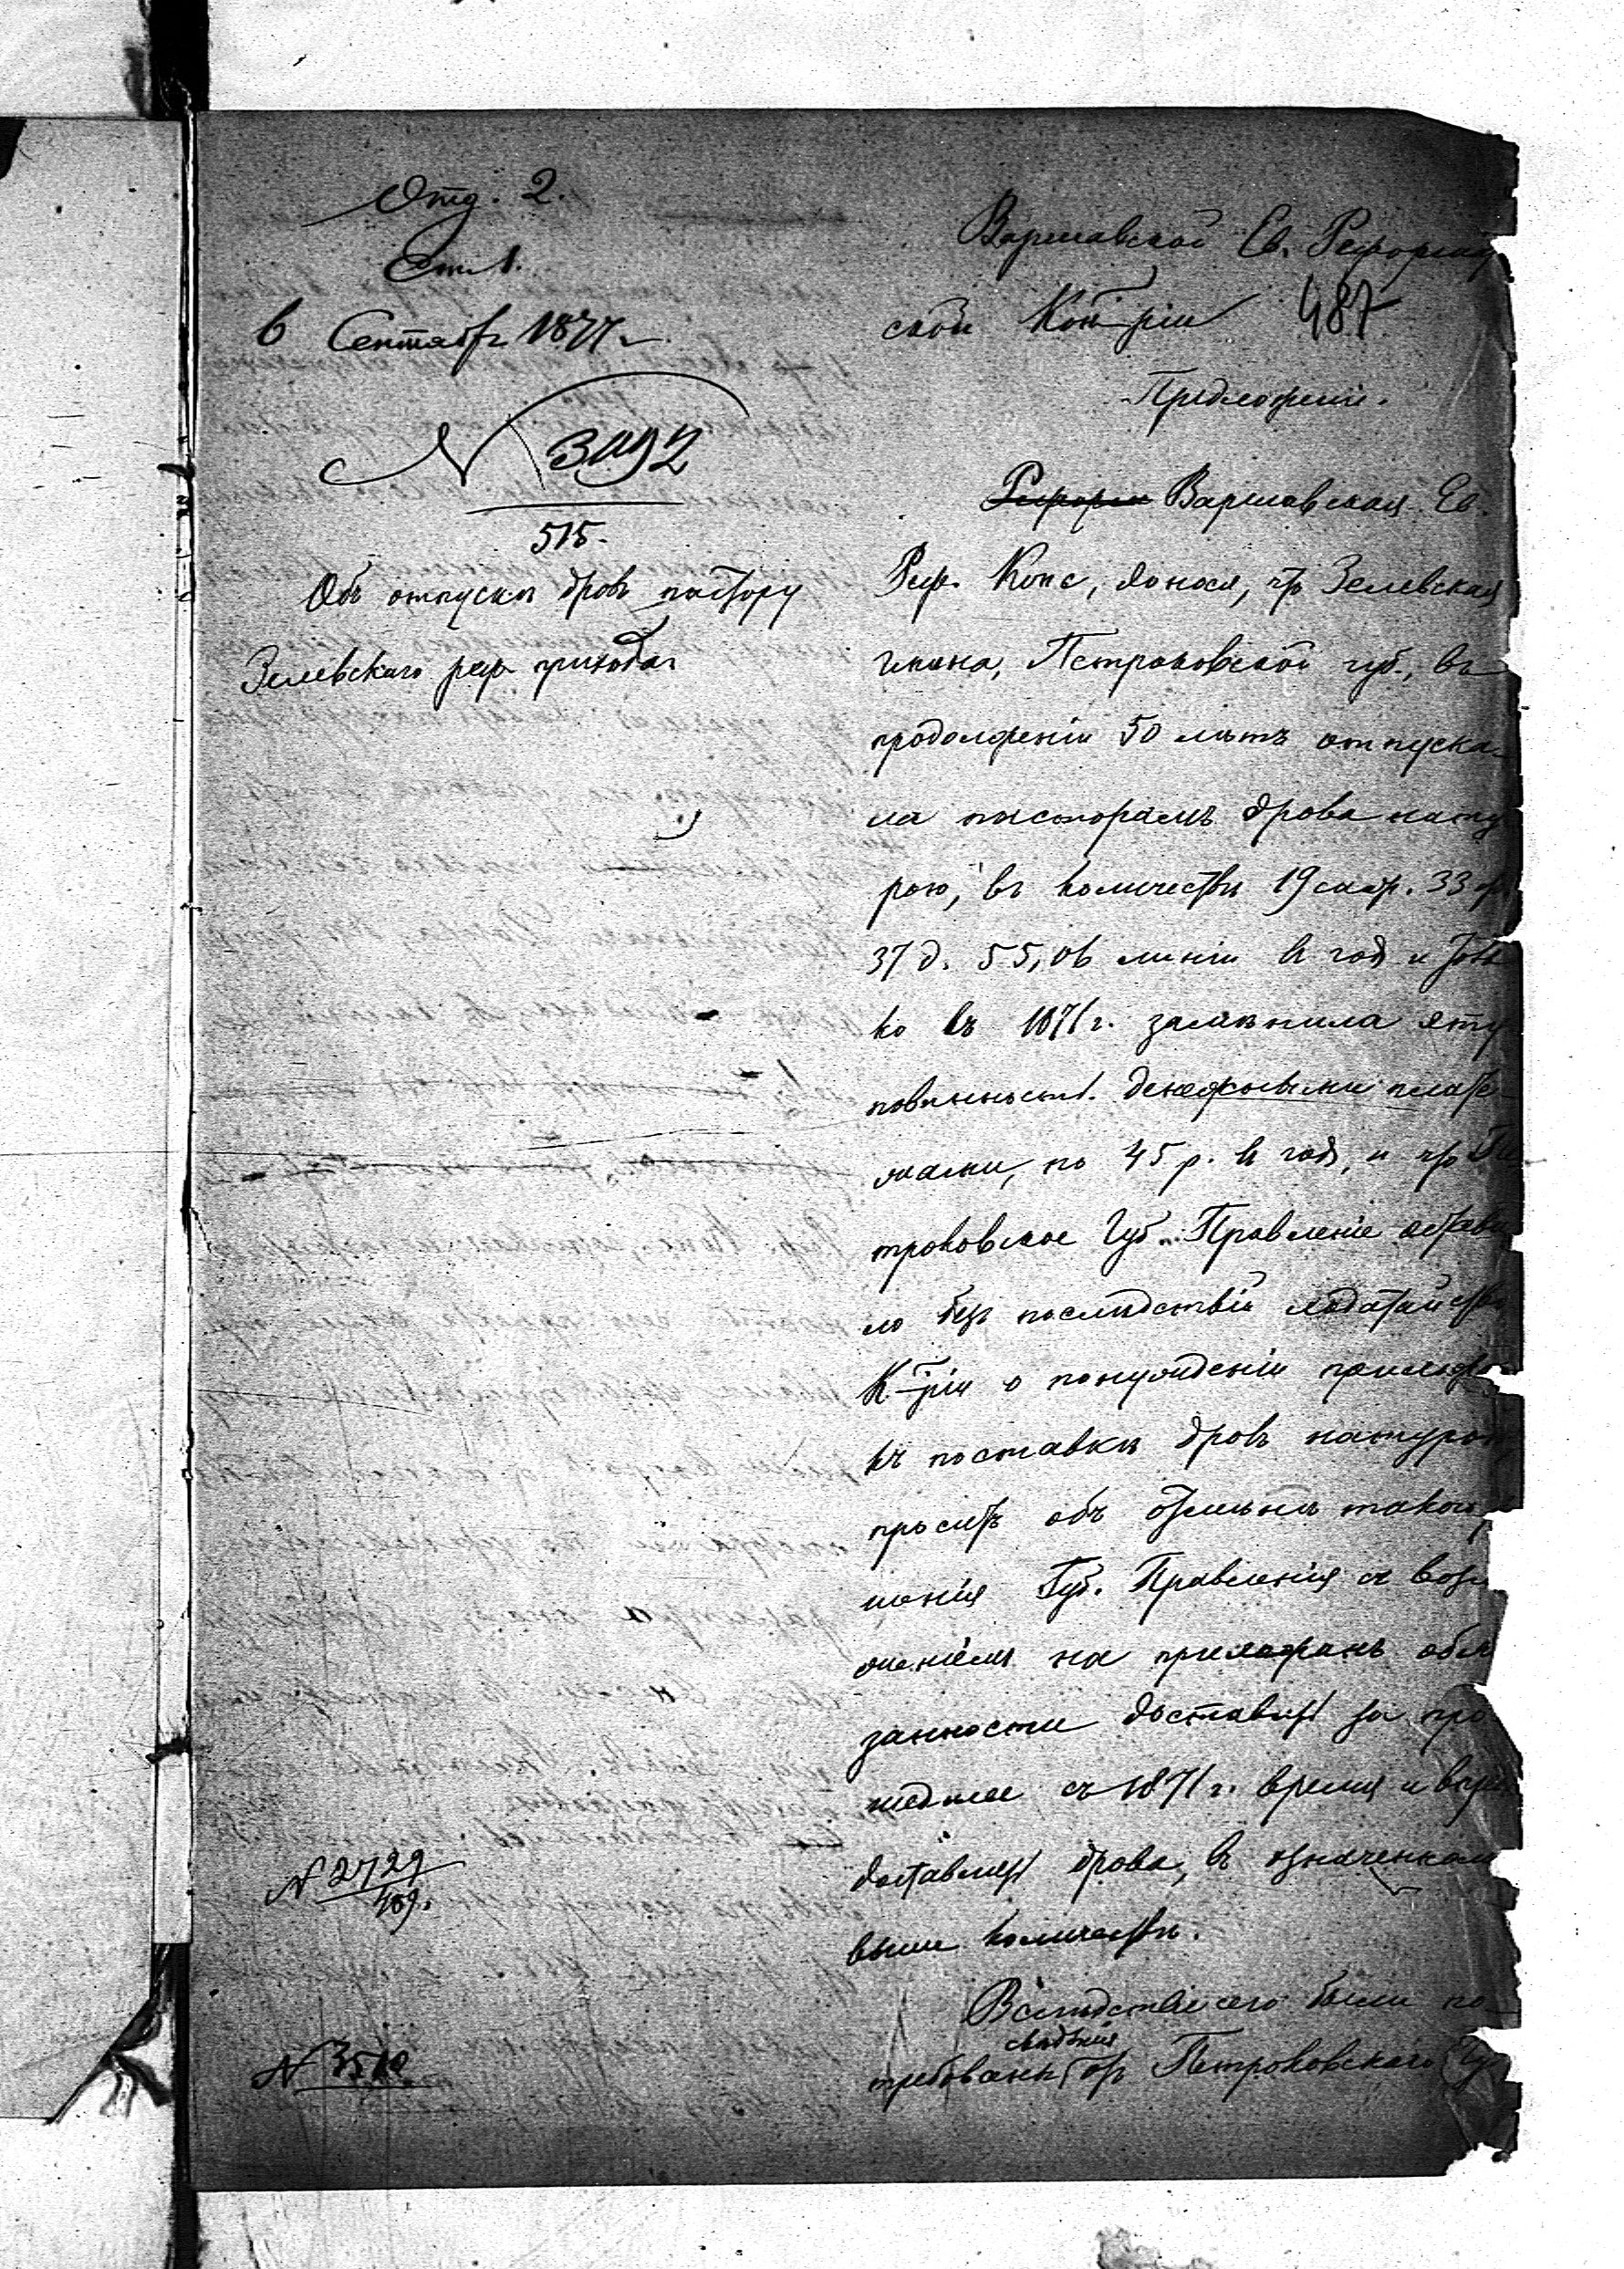 Отд. 2.
Ст. 1.
6 Сентября 1877 г.
№ 3492
515.
Объ отпускѣ дровъ пастору
Зелевскаго реф. прихода
№ 2729
489.
№ 3510
Варшавской Ев. Реформат
ской Кон-ріи 487
Предложеніе.
Реформ Варшавская Ев.
Реф. Конс, донося, что Зелевская
гмина, Петроковской губ., въ
продолженіи 50 лѣтъ отпуска
ла пасторамъ дрова нату
рою, въ количествѣ 19 саж. 33
37 д. 55,06 линіи въ годъ и толь
ко въ 1871 г. замѣнила эту
повинность денежными плате
жами, по 45 р. въ годъ, и что Пе
троковское Губ. Правленіе остави
ло безъ послѣдствій ходатайство
К-ріи о понужденіи прихожанъ
къ поставкѣ дровъ натурою
проситъ объ отмѣнѣ такого
Губ. Правленія съ возло
женіемъ на прихожанъ обя
занности доставить за про
шедшее съ 1871 г. время и впредь
доставлять дрова, въ означенномъ
выше количествѣ.
Вслѣдствіе сего были по
свѣдѣнія
требованы отъ Петроковскаго Гу